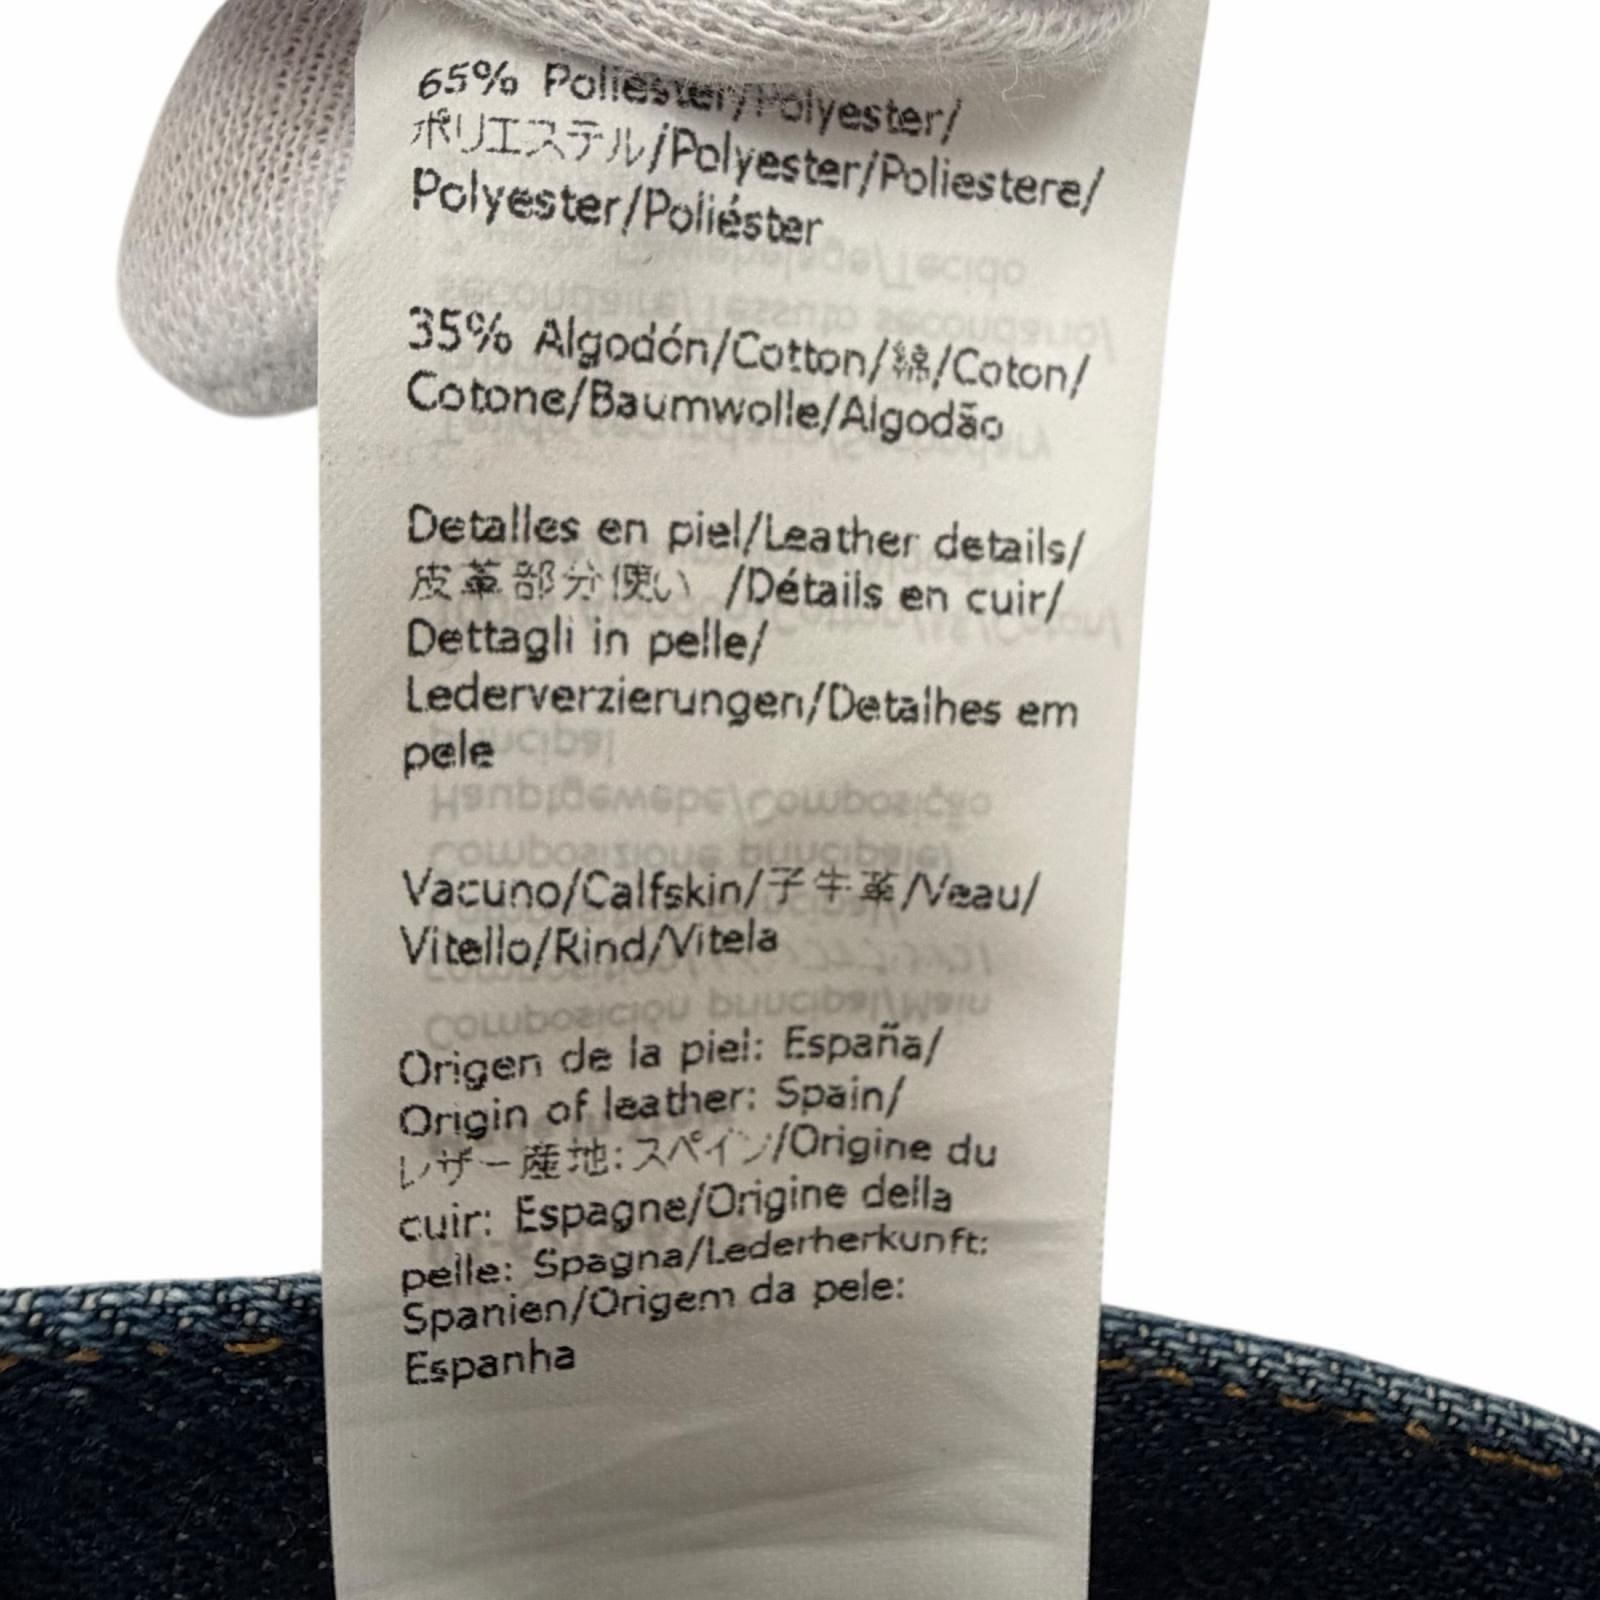 65% Poliéster/Polyester/
ポリエステル/Polyester/Poliestere/
Polyester/Poliéster
35% Algodón/Cotton/綿/Coton/
Cotone/Baumwolle/Algodão
Detalles en piel/Leather details/
皮革部分使い /Détails en cuir/
Dettagli in pelle/
Lederverzierungen/Detalhes em
pele
Vacuno/Calfskin/子牛革/Veau/
Vitello/Rind/Vitela
Origen de la piel: España/
Origin of leather: Spain/
レザー産地:スペイン/Origine du
cuir: Espagne/Origine della
pelle: Spagna/Lederherkunft:
Spanien/Origem da pele:
Espanha